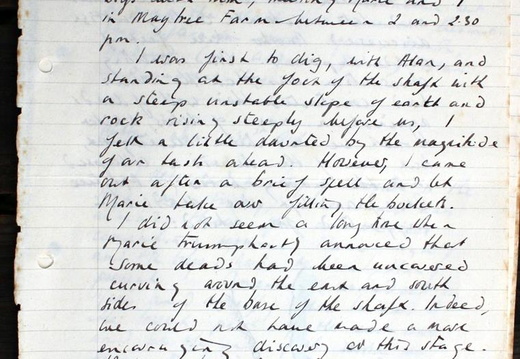 digs with him, making Marie and I
in Maytree Farm between 2 and 2.30
pm.
I was first to dig, with Alan, and
standing at the foot of the shaft with
a steep unstable slope of earth and
rock rising steeply before us, I
felt a little daunted by the magnitude
of our task ahead. However, I came
out after a brief spell and let
Marie take over filling the buckets.
I did not seem a long time when
Marie triumphantly announced that
some deads had been uncovered
curving around the east and south
sides of the base of the shaft. Indeed,
we could not have made a more
encouraging discovery at this stage.